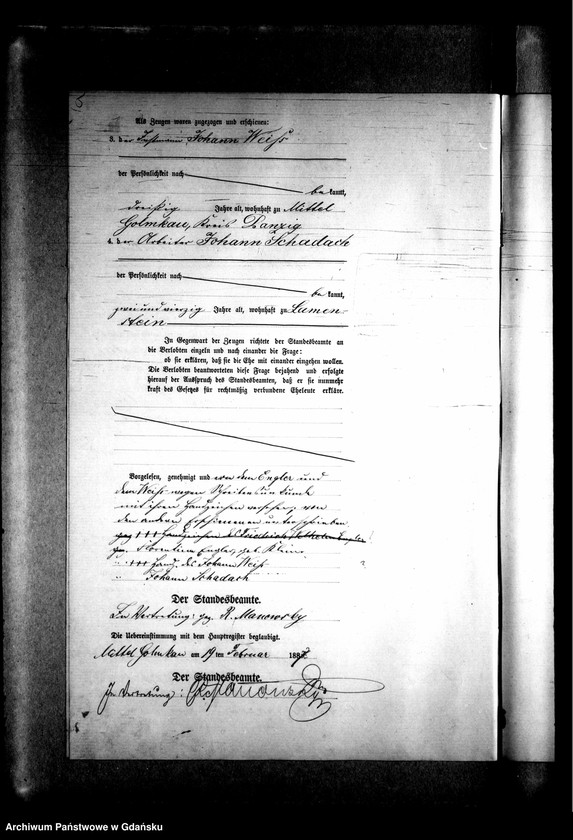 Als Zeugen waren zugezogen und erschienen:
3. der Instmann Johann Weiß
der Persönlichkeit nach
bekannt,
dreißig Jahre alt, wohnhaft zu Mittel
Golmkau, Kreis Danzig
4. der Arbeiter Johann Schadach
der Persönlichkeit nach
bekannt,
zwei und vierzig Jahre alt, wohnhaft zu Lamen
stein
In Gegenwart der Zeugen richtete der Standesbeamte an
die Verlobten einzeln und nach einander die Frage:
ob sie erklären, daß sie die Ehe mit einander eingehen wollen.
Die Verlobten beantworteten diese Frage bejahend und erfolgte
hierauf der Ausspruch des Standesbeamten, daß er sie nunmehr
kraft des Gesetzes für rechtmäßig verbundene Eheleute erkläre.
Vorgelesen, genehmigt und von dem Engler und
dem Weiß wegen Schreibensunkunde
mit ihren Handzeichen versehen, von
den anderen Erschienenen unterschrieben
gez. +++ Handzeichen des Friedrich Engler
gez. Florentine Engler, geb. Klein
" +++ Handz. des Johann Weiß
" Johann Schadach
Der Standesbeamte.
In Vertretung: gez. R. Manowsky
Die Uebereinstimmung mit dem Hauptregister beglaubigt.
Mittel Golmkau am 19 ten Februar 188
Der Standesbeamte.
In Vertretung: R. Manowsky
Archiwum Państwowe w Gdańsku